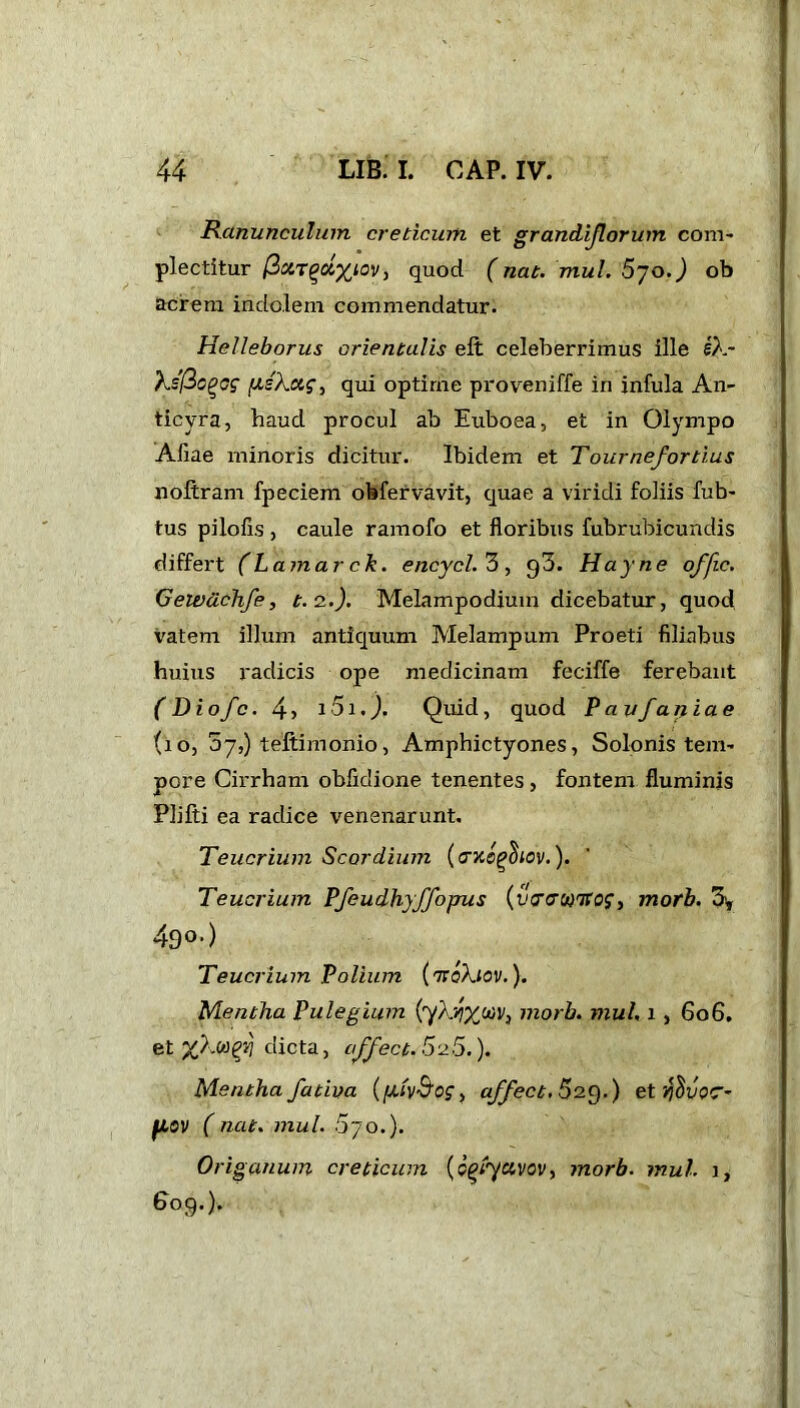 44 LIB. I. CAP. IV.
Ranunculum creticum et grandiflorum com-
plectitur βατράχιον, quod (nat. mul. 570.) ob
acrem indolem commendatur.
Helleborus orientalis eſt celeberrimus ille ἑλ-
λέβορος μέλας, qui optime proveniſſe in inſula An-
ticyra, haud procul ab Euboea, et in Olympo
Aſiae minoris dicitur. Ibidem et Tournefortius
noſtram ſpeciem obſervavit, quae a viridi foliis ſub-
tus piloſis, caule ramoſo et floribus ſubrubicundis
differt (Lamarck. encycl. 3, 93. Hayne offic.
Gewächſe, t. 2.). Melampodium dicebatur, quod
vatem illum antiquum Melampum Proeti filiabus
huius radicis ope medicinam feciſſe ferebant
(Dioſc. 4, 151.). Quid, quod Pauſaniae
(10, 37,) teſtimonio, Amphictyones, Solonis tem-
pore Cirrham obſidione tenentes, fontem fluminis
Pliſti ea radice venenarunt.
Teucrium Scordium (σκόρδιον.).
Teucrium Pſeudhyſſopus (ὕσσωπος, morb. 3,
490.)
Teucrium Polium (πόλιον.).
Mentha Pulegium (γλήχων, morb. mul. 1, 606.
et χλωρὴ dicta, affect. 525.).
Mentha ſativa (μίνθος, affect. 529.) et ἡδύοσ-
μον (nat. mul. 570.).
Origanum creticum (ὀρίγανον, morb. mul. 1,
609.).